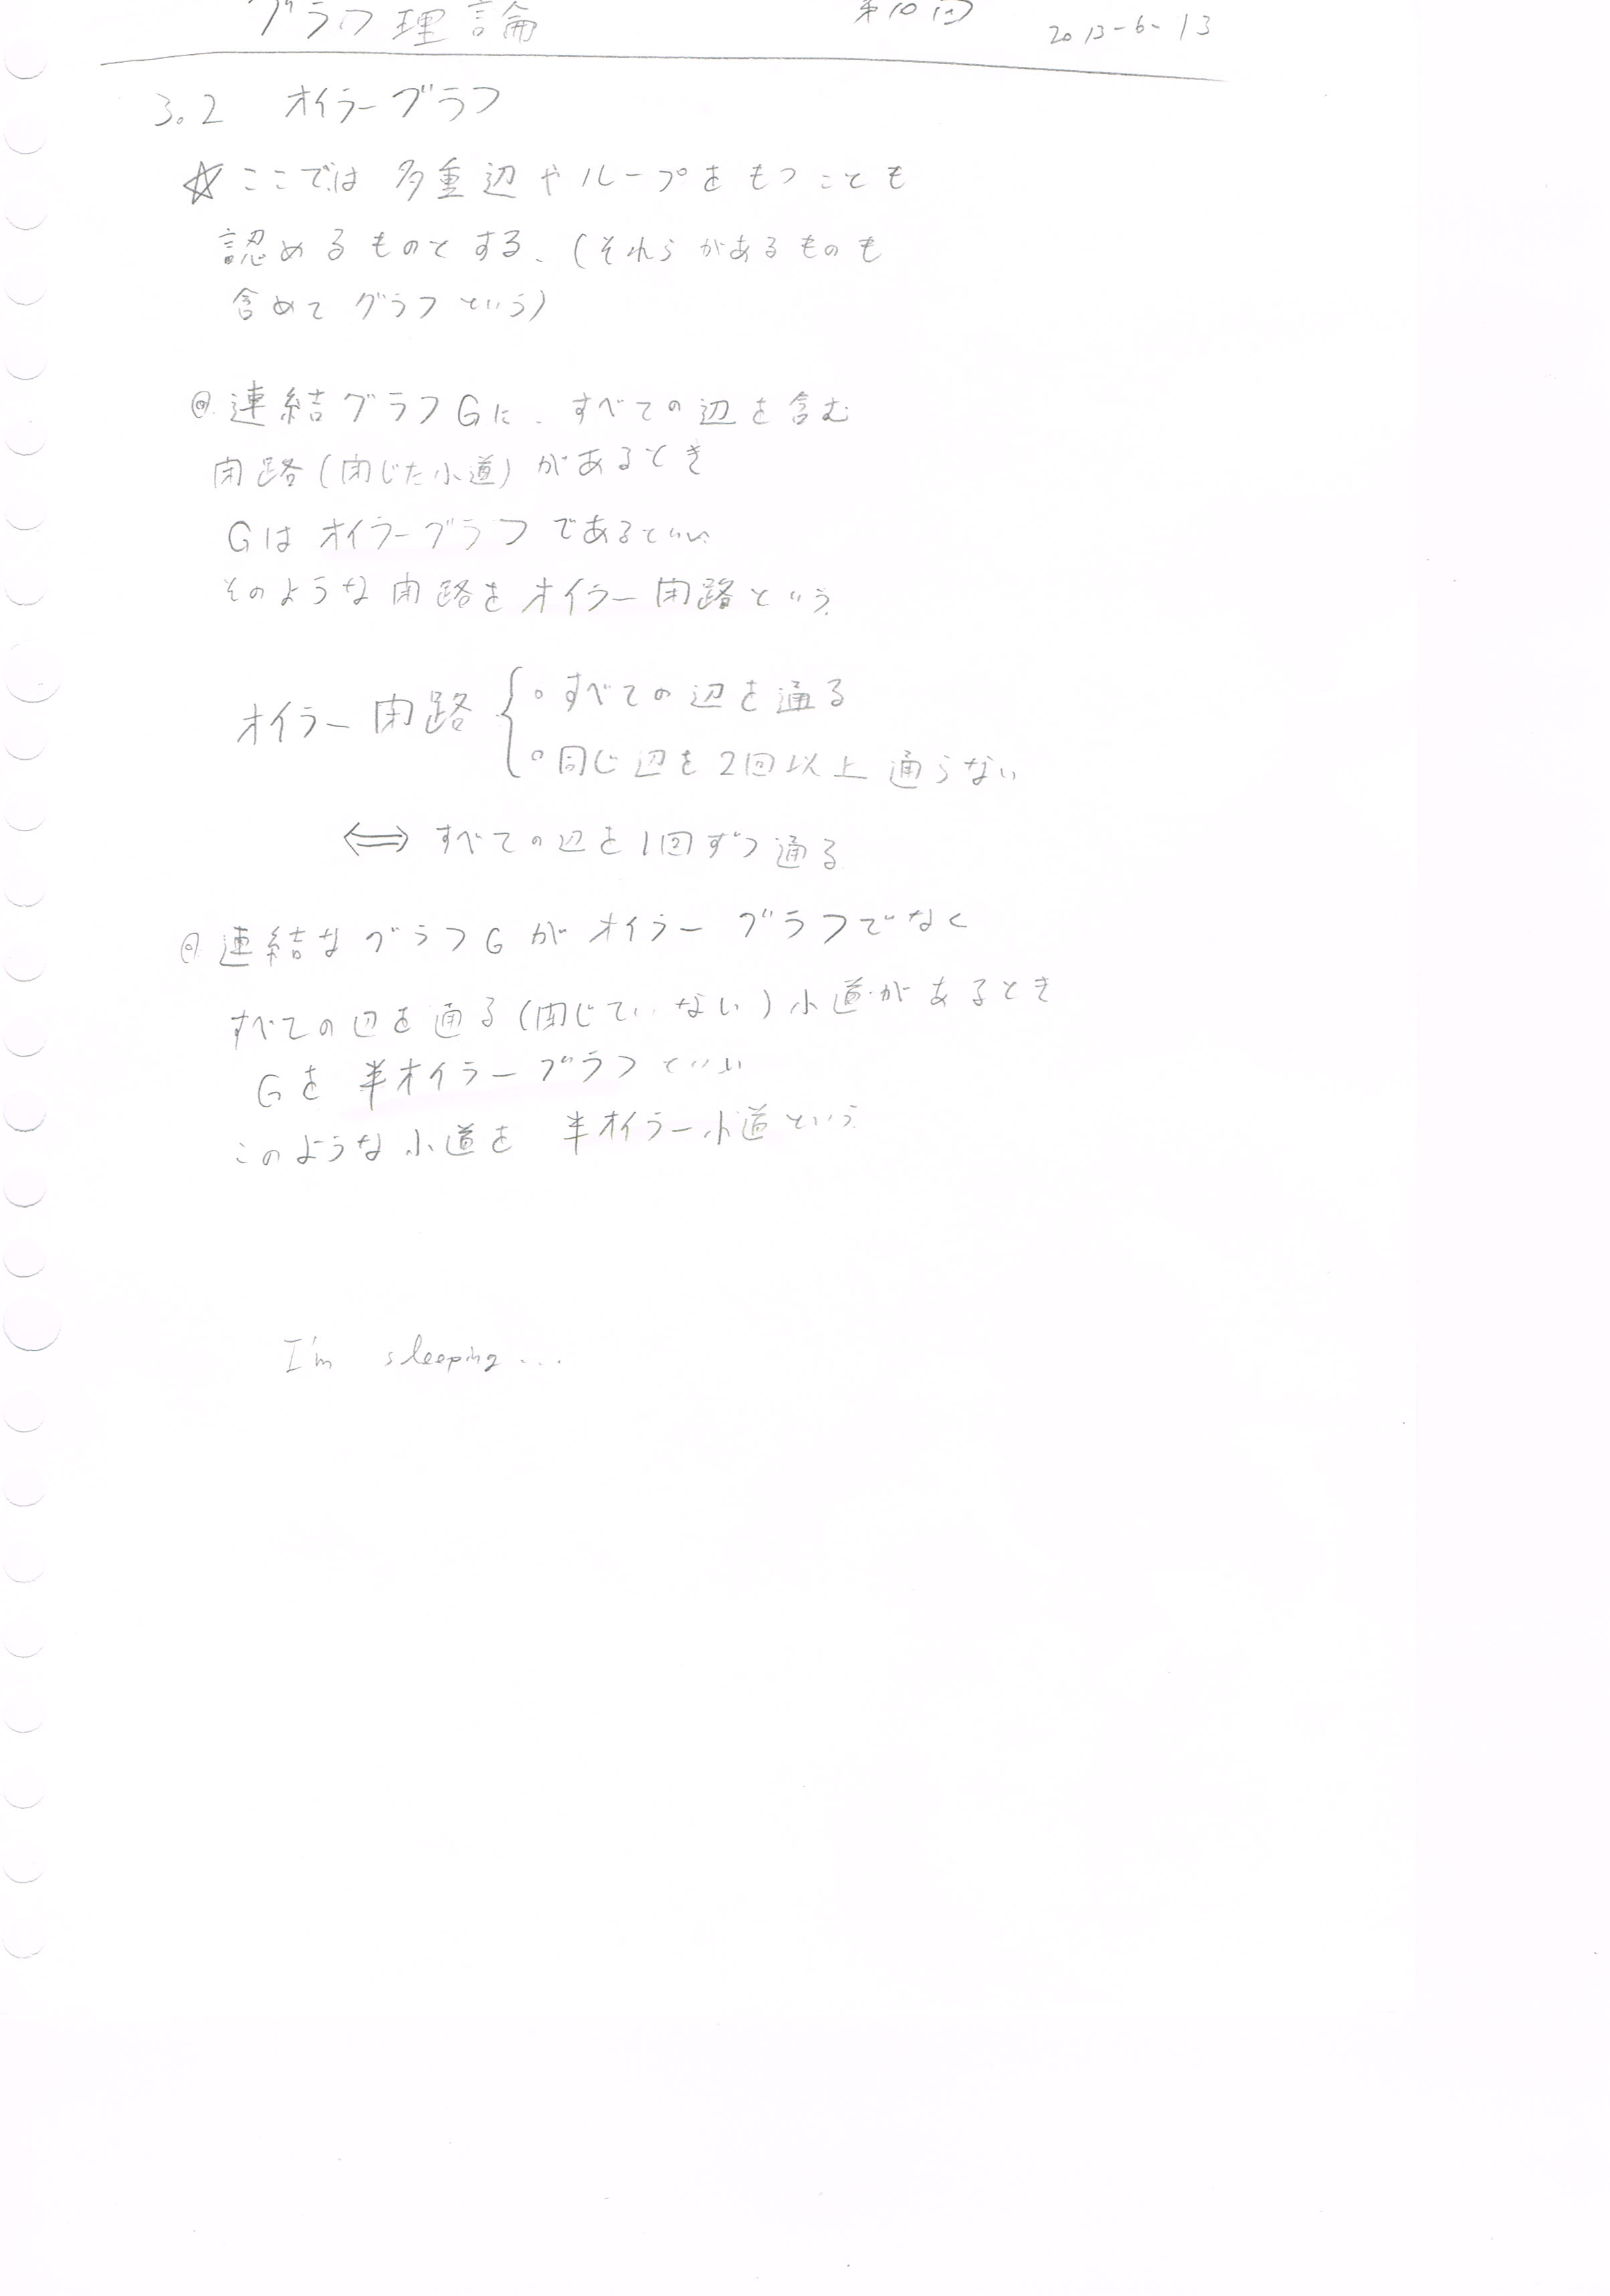 グラフ理論 第10回 2013-6-13
3.2 オイラーグラフ
☆ ここでは 多重辺やループをもつことも
認めるものとする、(それらがあるものも
含めて グラフという)
◎ 連結グラフGに、すべての辺を含む
閉路(閉じた小道)があるとき
Gは オイラーグラフ であるといい
そのような閉路をオイラー閉路という。
オイラー閉路 { ∘ すべての辺を通る
∘ 同じ辺を2回以上 通らない
⟺ すべての辺を1回ずつ通る
◎ 連結なグラフGがオイラーグラフでなく
すべての辺を通る(閉じていない)小道があるとき
Gを 半オイラーグラフといい
このような小道を 半オイラー小道という
I'm sleeping...